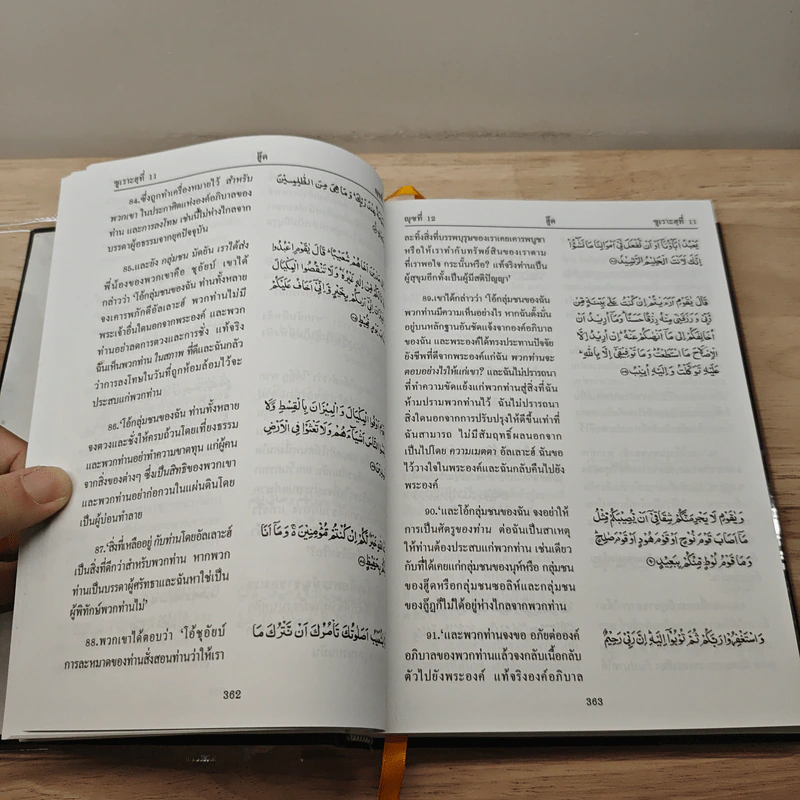 ซูเราะฮฺที่ 11
ฮู๊ด
84.ซึ่งถูกทำเครื่องหมายไว้ สำหรับ
พวกเขา ในประกาศิตแห่งองค์อภิบาลของ
ท่าน และการลงโทษ เช่นนี้ไม่ห่างไกลจาก
บรรดาผู้อธรรมจากยุคปัจจุบัน
85.และยัง กลุ่มชน มัดยัน เราได้ส่ง
พี่น้องของพวกเขาคือ ชุอัยบ์ เขาได้
กล่าวว่า 'โอ้กลุ่มชนของฉัน ท่านทั้งหลาย
จงเคารพภักดีอัลเลาะฮ์ พวกท่านไม่มี
พระเจ้าอื่นใดนอกจากพระองค์ และพวก
ท่านอย่าลดการตวงและการชั่ง แท้จริง
ฉันเห็นพวกท่าน ในสภาพ ที่ดีและฉันกลัว
ว่าการลงโทษในวันที่ถูกห้อมล้อมไว้จะ
ประสบแก่พวกท่าน
86.'โอ้กลุ่มชนของฉัน ท่านทั้งหลาย
จงตวงและชั่งให้ครบถ้วนโดยเที่ยงธรรม
และพวกท่านอย่าทำความขาดทุน แก่ผู้คน
จากสิ่งของต่างๆ ซึ่งเป็นสิทธิของพวกเขา
และพวกท่านอย่าก่อกวนในแผ่นดินโดย
เป็นผู้บ่อนทำลาย
87.'สิ่งที่เหลืออยู่ กับท่านโดยอัลเลาะฮ์
เป็นสิ่งที่ดีกว่าสำหรับพวกท่าน หากพวก
ท่านเป็นบรรดาผู้ศรัทธาและฉันหาใช่เป็น
ผู้พิทักษ์พวกท่านไม่'
88.พวกเขาได้ตอบว่า 'โอ้ชุอัยบ์
การละหมาดของท่านสั่งสอนท่านว่าให้เรา
وَمَا هِيَ مِنَ الظّٰلِمِيْنَ
اَخَاهُمْ شُعَيْبًا ۗ قَالَ يٰقَوْمِ اعْبُدُوا
غَيْرُهٗ ۗ وَلَا تَنْقُصُوا الْمِكْيَالَ
بِخَيْرٍ وَّاِنِّيْٓ اَخَافُ عَلَيْكُمْ
اَوْفُوا الْمِكْيَالَ وَالْمِيْزَانَ بِالْقِسْطِ وَلَا
النَّاسَ اَشْيَاۤءَهُمْ وَلَا تَعْثَوْا فِى الْاَرْضِ
خَيْرٌ لَّكُمْ اِنْ كُنْتُمْ مُّؤْمِنِيْنَ ەۚ وَمَآ اَنَا
اَصَلٰوتُكَ تَأْمُرُكَ اَنْ نَّتْرُكَ مَا
362
ญุซที่ 12
ฮู๊ด
ซูเราะฮฺที่ 11
ละทิ้งสิ่งที่บรรพบุรุษของเราเคยเคารพบูชา
หรือให้เราทำกับทรัพย์สินของเราตาม
ที่เราพอใจ กระนั้นหรือ? แท้จริงท่านเป็น
ผู้สุขุมอีกทั้งเป็นผู้มีสติปัญญา'
89.เขาได้กล่าวว่า 'โอ้กลุ่มชนของฉัน
พวกท่านมีความเห็นอย่างไร หากฉันตั้งมั่น
อยู่บนหลักฐานอันชัดแจ้งจากองค์อภิบาล
ของฉัน และพระองค์ได้ทรงประทานปัจจัย
ยังชีพที่ดีจากพระองค์แก่ฉัน พวกท่านจะ
ตอบอย่างไรให้แก่เขา? และฉันไม่ปรารถนา
ที่ทำความขัดแย้งแก่พวกท่านสู่สิ่งที่ฉัน
ห้ามปรามพวกท่านไว้ ฉันไม่ปรารถนา
สิ่งใดนอกจากการปรับปรุงให้ดีขึ้นเท่าที่
ฉันสามารถ ไม่มีสัมฤทธิ์ผลนอกจาก
เป็นไปโดย ความเมตตา อัลเลาะฮ์ ฉันขอ
ไว้วางใจในพระองค์และฉันกลับคืนไปยัง
พระองค์
90.'และโอ้กลุ่มชนของฉัน จงอย่าให้
การเป็นศัตรูของท่าน ต่อฉันเป็นสาเหตุ
ให้ท่านต้องประสบแก่พวกท่าน เช่นเดียว
กับที่ได้เคยแก่กลุ่มชนของนุห์หรือ กลุ่มชน
ของฮู๊ดหรือกลุ่มชนซอลิห์และกลุ่มชน
ของลู๊ฏก็ไม่ได้อยู่ห่างไกลจากพวกท่าน
91.'และพวกท่านจงขอ อภัยต่อองค์
อภิบาลของพวกท่านแล้วจงกลับเนื้อกลับ
ตัวไปยังพระองค์ แท้จริงองค์อภิบาล
يَعْبُدُ اٰبَاۤؤُنَآ اَوْ اَنْ نَّفْعَلَ فِيْٓ اَمْوَالِنَا مَا نَشٰۤؤُا
اِنَّكَ لَاَنْتَ الْحَلِيْمُ الرَّشِيْدُ
قَالَ يٰقَوْمِ اَرَءَيْتُمْ اِنْ كُنْتُ عَلٰى بَيِّنَةٍ مِّنْ
رَّبِّيْ وَرَزَقَنِيْ مِنْهُ رِزْقًا حَسَنًا وَمَآ اُرِيْدُ اَنْ
اُخَالِفَكُمْ اِلٰى مَآ اَنْهٰىكُمْ عَنْهُ ۗ اِنْ اُرِيْدُ اِلَّا
الْاِصْلَاحَ مَا اسْتَطَعْتُ وَمَا تَوْفِيْقِيْٓ اِلَّا بِاللّٰهِ
عَلَيْهِ تَوَكَّلْتُ وَاِلَيْهِ اُنِيْبُ
وَيٰقَوْمِ لَا يَجْرِمَنَّكُمْ شِقَاقِيْٓ اَنْ يُّصِيْبَكُمْ مِّثْلُ
مَآ اَصَابَ قَوْمَ نُوْحٍ اَوْ قَوْمَ هُوْدٍ اَوْ قَوْمَ صٰلِحٍ
وَمَا قَوْمُ لُوْطٍ مِّنْكُمْ بِبَعِيْدٍ
وَاسْتَغْفِرُوْا رَبَّكُمْ ثُمَّ تُوْبُوْٓا اِلَيْهِ اِنَّ رَبِّيْ رَحِيْمٌ
363